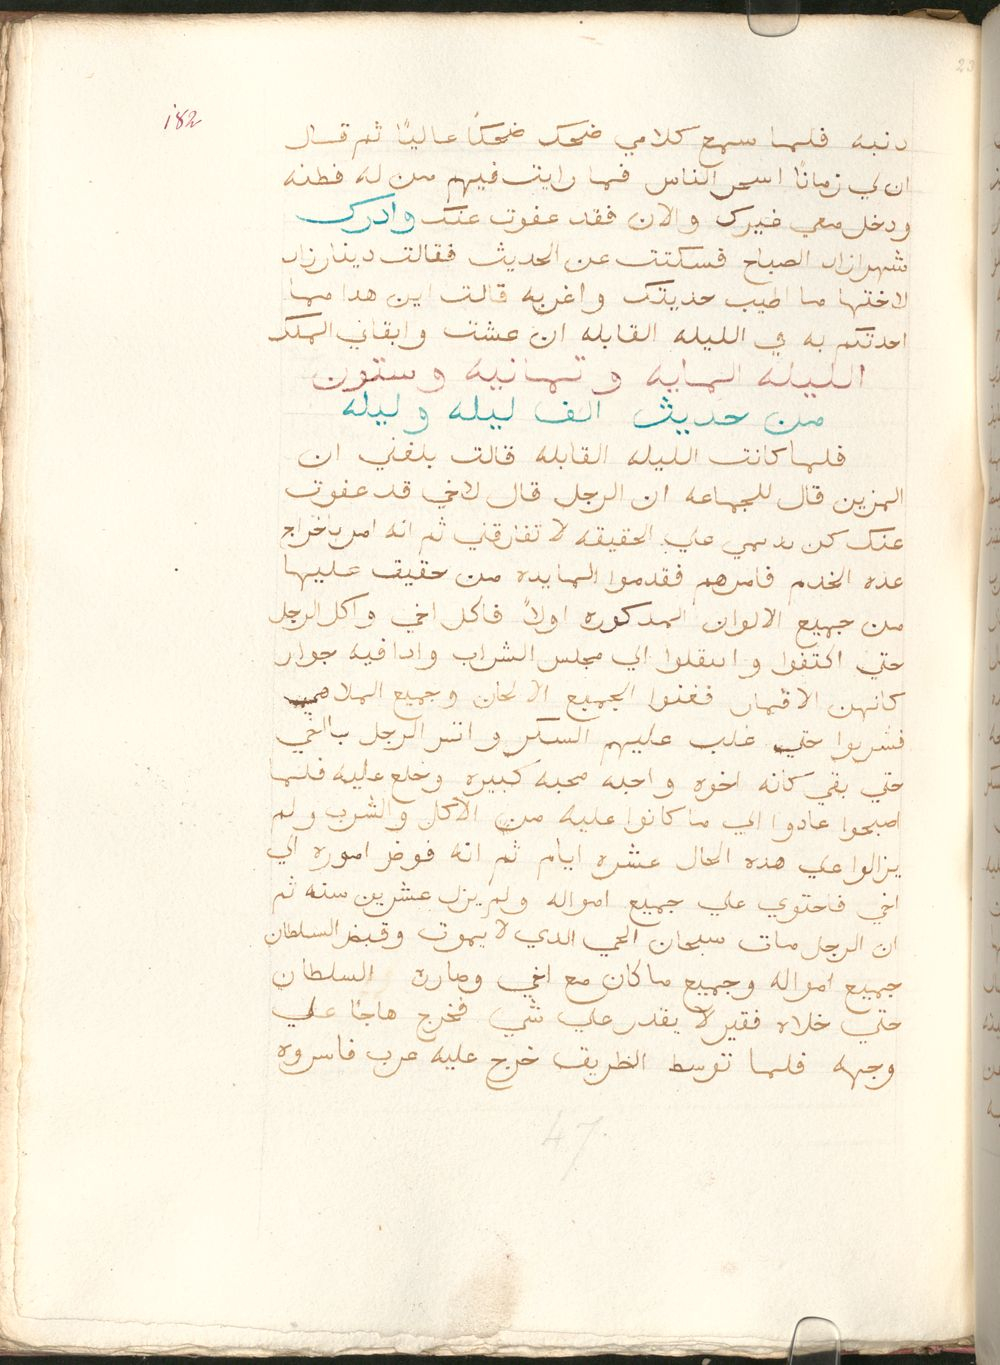 182
دنبه فلما سمع كلامي ضحك ضحكًا عاليًا ثم قال
ان لي زمانًا اسحر الناس فما رايت فيهم من له فطنه
ودخل معي غيرك والان فقد عفوت عنك وادرك
شهرازاد الصباح فسكتت عن الحديث فقالت دينارزاد
لاختها ما اطيب حديتك واغربه قالت اين هدا مما
احدتكم به في الليله القابله ان عشت وابقاني الملك
الليله المايه وتمانيه وستون
من حديث الف ليله وليله
فلما كانت الليله القابله قالت بلغني ان
المزين قال للجماعه ان الرجل قال لاخي قد عفوت
عنك كن نديمي علي الحقيقه لا تفارقني ثم انه امر باخراج
عده الخدم فامرهم فقدموا المايده من حقيق عليها
من جميع الالوان المدكوره اولاً فاكل اخي واكل الرجل
حتي اكتفوا وانتقلوا الي مجلس الشراب وادا فيه جوار
كانهن الاقمار فغنوا الجميع الالحان وجميع الملاهي
فشربوا حتي غلب عليهم السكر وانس الرجل باخي
حتي بقي كانه اخوه واحبه محبه كبيره وخلع عليه فلما
اصبحوا عادوا الي ما كانوا عليه من الاكل والشرب ولم
يزالوا علي هده الحال عشره ايام ثم انه فوض اموره الي
اخي فاحتوي علي جميع امواله ولم يزل عشرين سنه ثم
ان الرجل مات سبحان الحي الدي لا يموت وقبض السلطان
جميع امواله وجميع ما كان مع اخي وصاره السلطان
حتي خلاه فقير لا يقدر علي شي فخرج هاجًا علي
وجهه فلما توسط الطريق خرج عليه عرب فاسروه
47